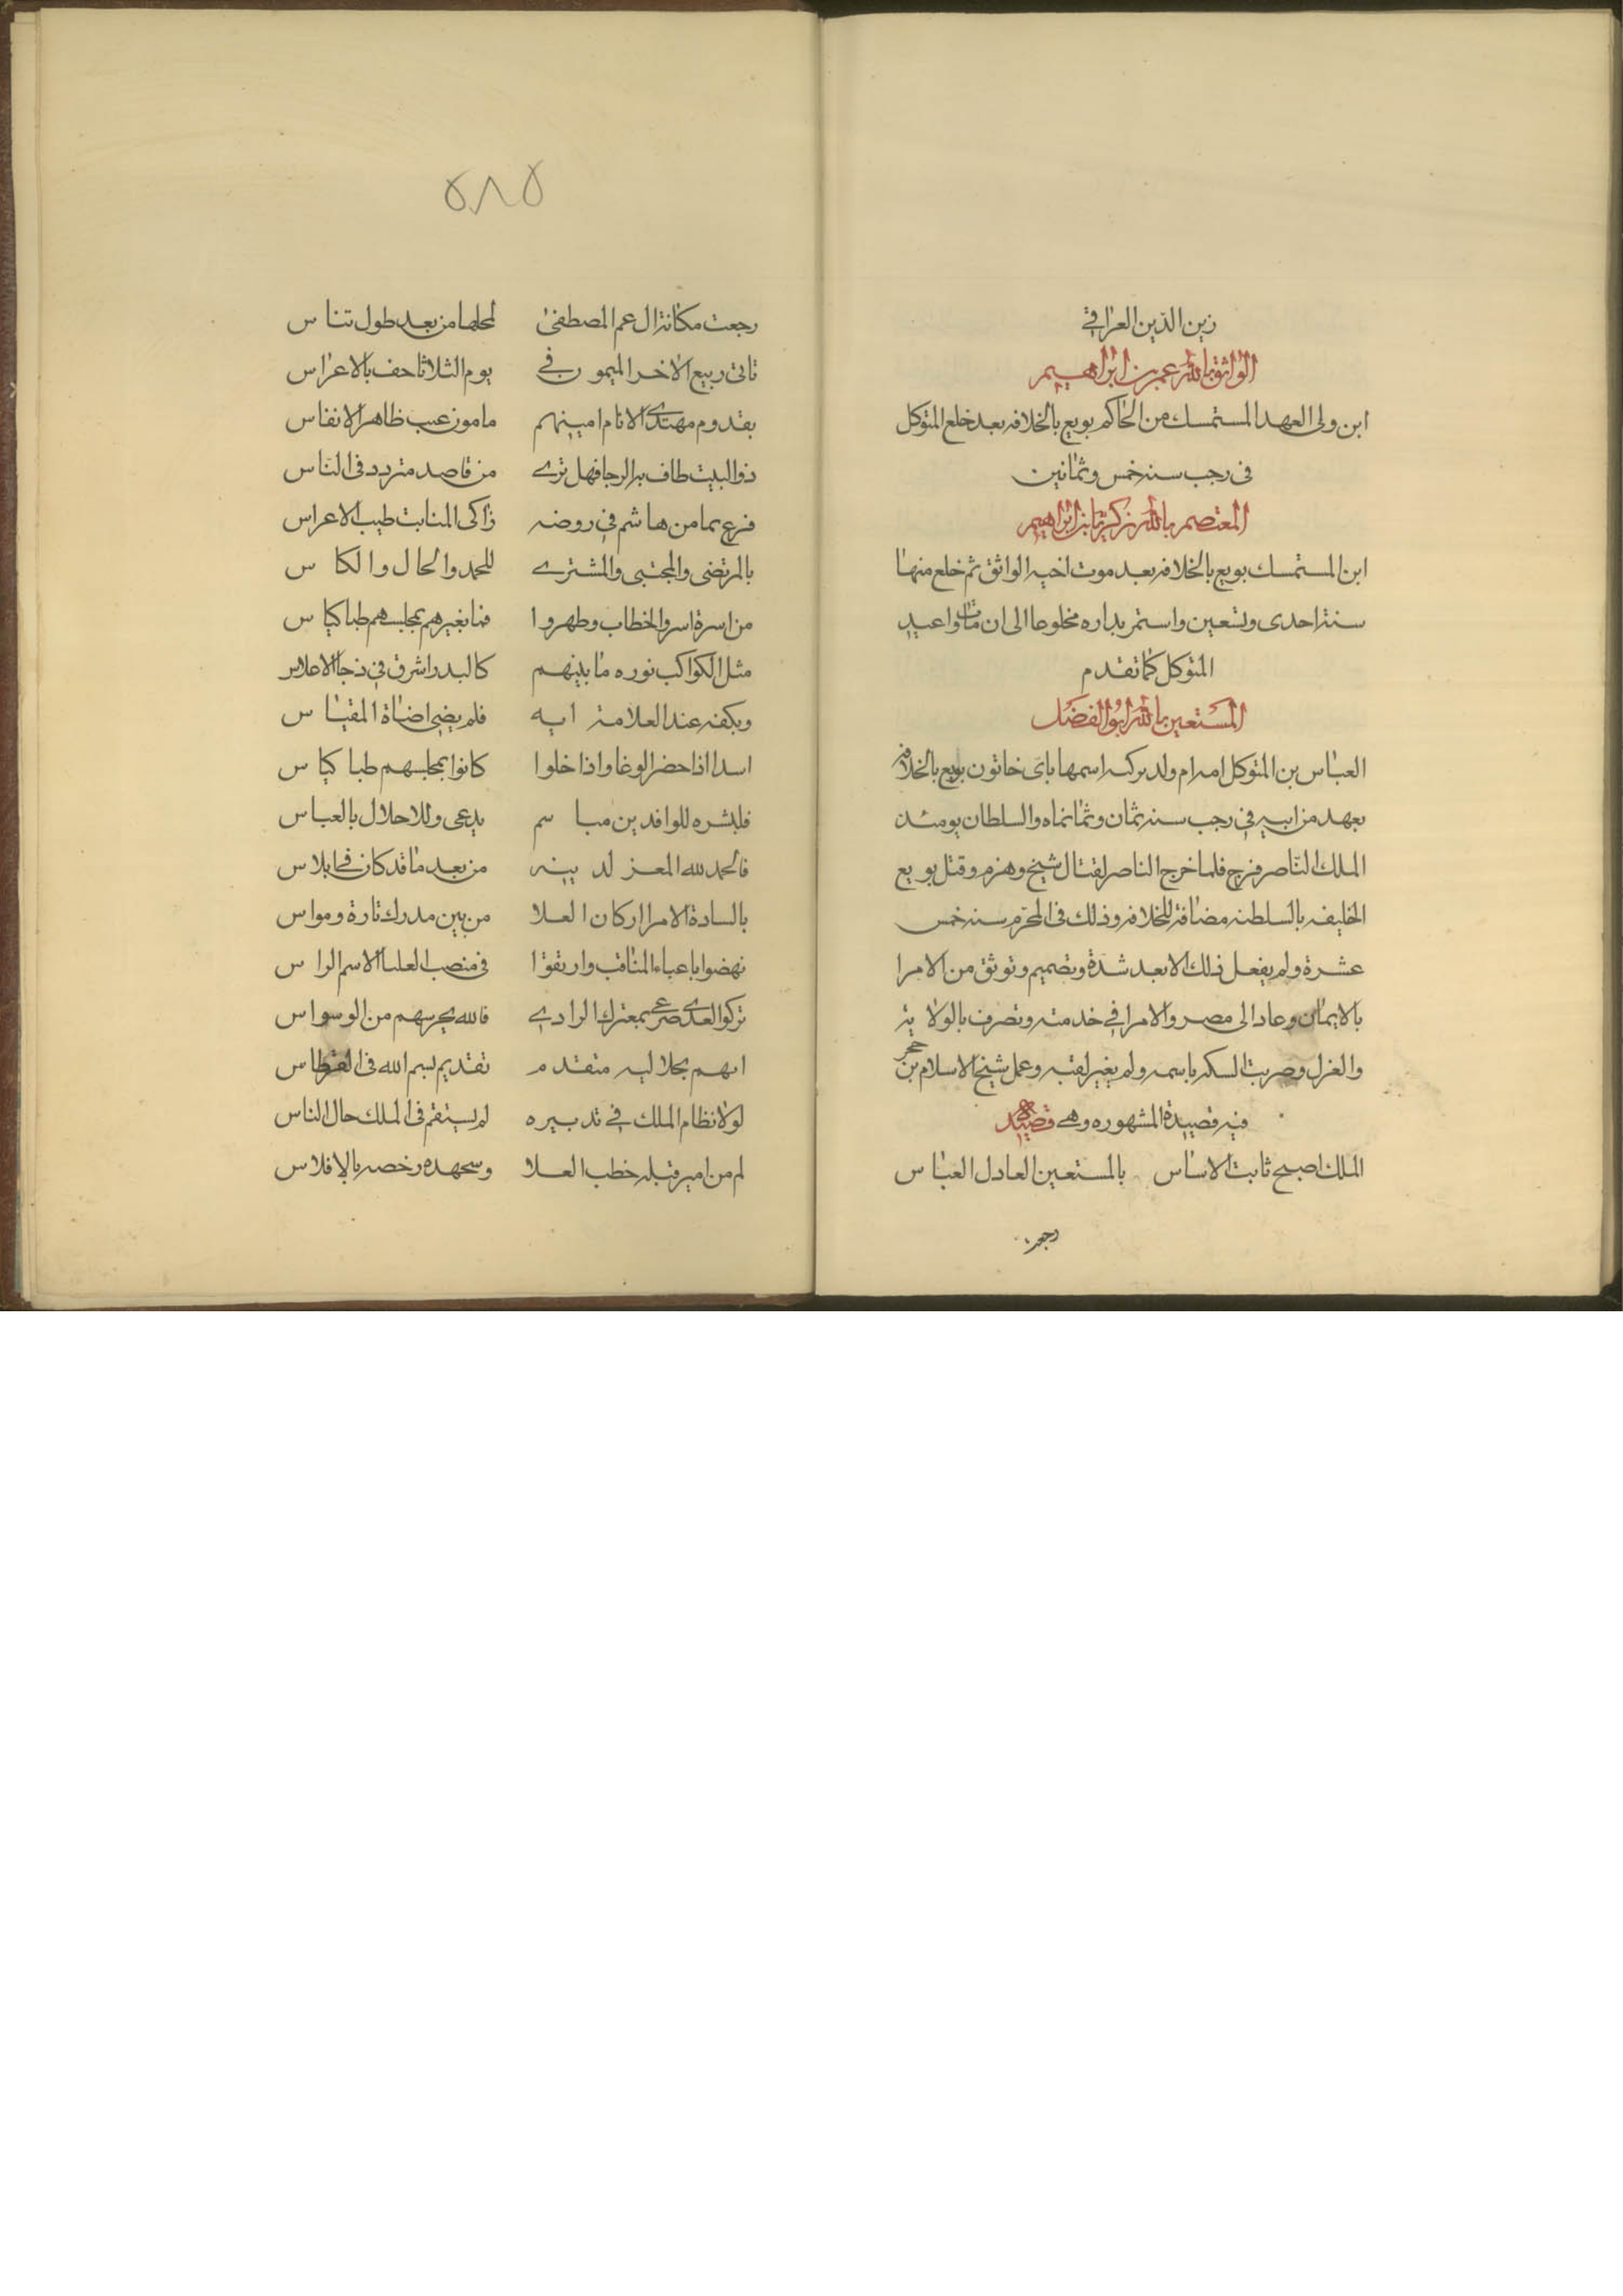 زين الدين العراقي
الواثق بالله عمر بن ابراهيم
ابن ولى العهد المستمسك من الحاكم بويع بالخلافه بعد خلع المتوكل
فى رجب سنه خمس وثمانين
المعتصم بالله زكريا بن ابراهيم
ابن المستمسك بويع بالخلافه بعد موت اخيه الواثق ثم خلع منها
سنة احدى وتسعين واستمر بداره مخلوعا الى ان مات واعيد
المتوكل كما تقدم
المستعين بالله ابو الفضل
العباس بن المتوكل امه ام ولد تركيه اسمها باى خاتون بويع بالخلافه
بعهد من ابيه في رجب سنه ثمان وثمانماه والسلطان يومئذ
الملك الناصر فرج فلما خرج الناصر لقتال شيخ وهزم وقتل بويع
الخليفه بالسلطنه مضافة للخلافه وذلك فى المحرم سنه خمس
عشرة ولم يفعل ذلك الا بعد شدة وتصميم وتوثق من الامرا
بالايمان وعاد الى مصر والامرا في خدمته وتصرف بالولاية
والعزل وضربت السكه باسمه ولم يغير لقبه وعمل شيخ الاسلام بن حجر
فيه قصيدة المشهوره وهي قصيده
الملك اصبح ثابت الاساس بالمستعين العادل العباس
رجعت
٥٨٥
رجعت مكانة ال عم المصطفى لمحلها من بعد طول تناس
ثانى ربيع الاخر الميمون في يوم الثلاثا حف بالاعراس
بقدوم مهتدى الانام امينهم مامون عيب طاهر الانفاس
ذو البيت طاف به الرجا فهل ترى من قاصد متردد فى الناس
فرع نما من هاشم في روضه زاكى المنابت طيب الاعراس
بالمرتضى والمجتبى والمشترى للحمد والحال والكاس
من اسرة اسروا الخطاب وطهروا بغيرهم بمجلسهم ظبا كناس
مثل الكواكب نوره ما بينهم كالبدر اشرق في دجا الاغلاس
وبكفه عند العلامة ايه قلم يضيى اضاة المقباس
اسدا اذا حضر الوغا واذا خلوا كانوا بمجلسهم ظبا كناس
فلبشره للوافدين مباسم يدعى وللاجلال بالعباس
فالحمد لله المعز لدينه من بعد ما قد كان في ابلاس
بالسادة الامرا اركان العلا من بين مدرك تارة ومواس
نهضوا باعباء المناقب وارتقوا فى منصب العليا الاسم الراس
تركوا العدى صرعى بمعترك الرادي فالله يحرسهم من الوسواس
بجلاليه متقدم تقديم بسم الله فى القرطاس
لولا نظام الملك في تدبيره لم يستقم فى الملك حال الناس
لم من امير قبله خطب العلا رخصه بالافلاس